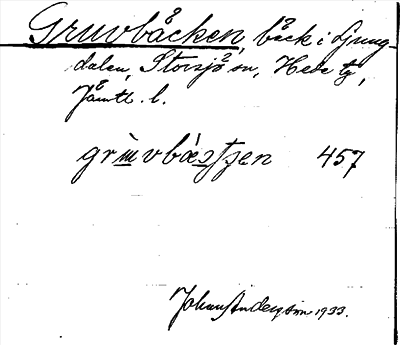 Gruvbäcken, bäck i Ljung-
dalen, Storsjö sn, Hede tg,
Jämtl. l.
457
Johan Anderson 1933.